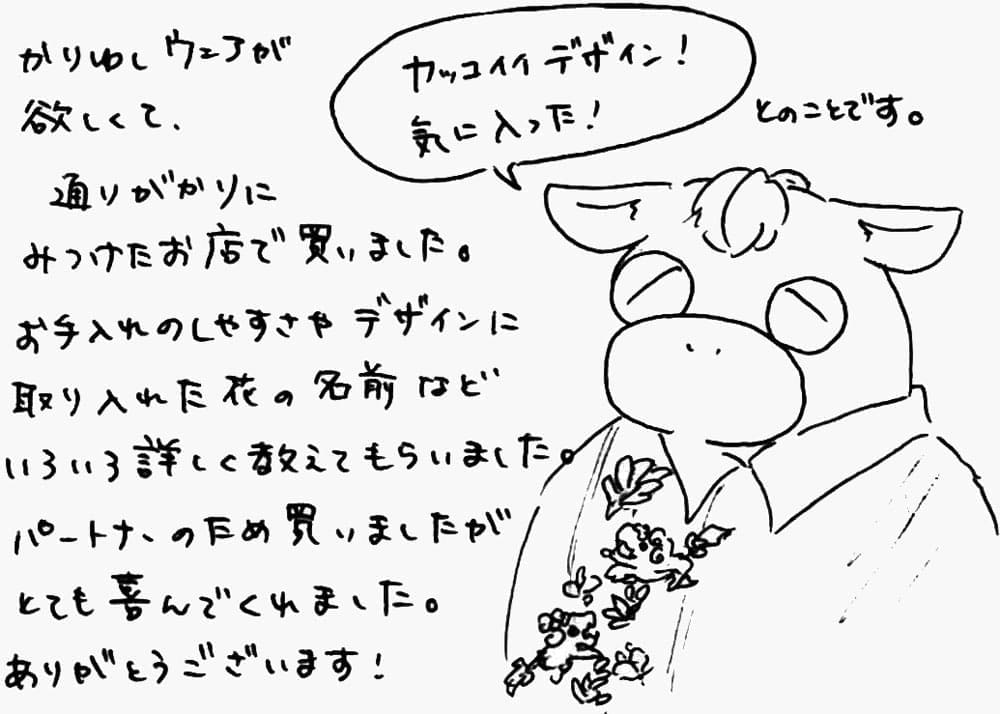 かりゆしウェアが
欲しくて、
通りがかりに
みつけたお店で買いました。
お手入れのしやすさやデザインに
取り入れた花の名前など
いろいろ詳しく教えてもらいました。
パートナーのため買いましたが
とても喜んでくれました。
ありがとうございます!
カッコイイデザイン!
気に入った!
とのことです。